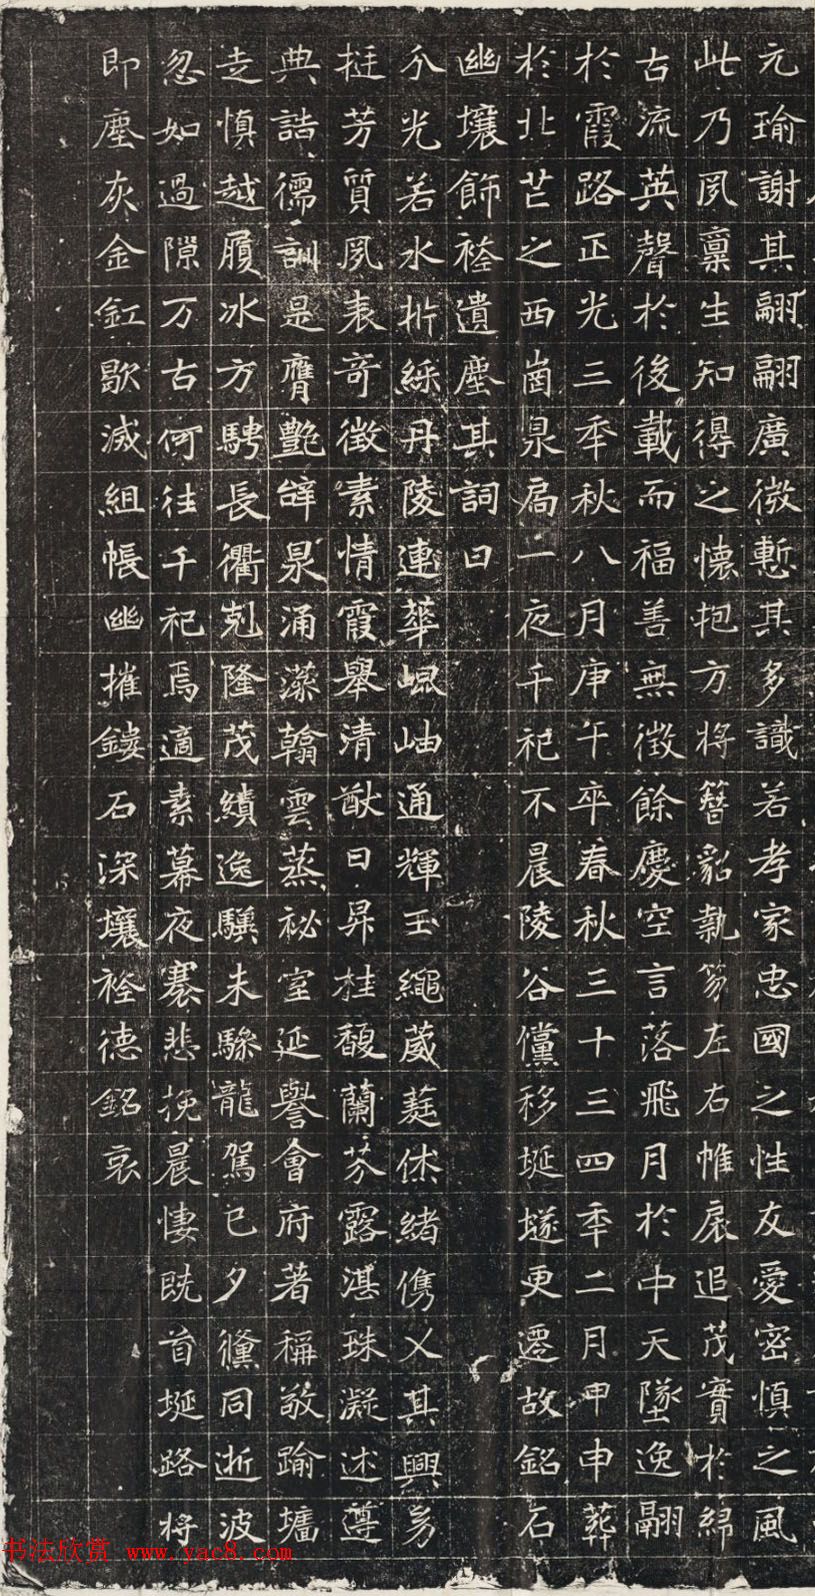 元瑜謝其翩翩廣微慙其多識若孝家忠國之性友愛密慎之風
此乃夙稟生知得之懷抱方將簪貂執笏左右帷扆追茂實於綿
古流英聲於後載而福善無徵餘慶空言落飛月於中天墜逸翮
於霞路正光三年秋八月庚午卒春秋三十三四年二月甲申葬
於北芒之西崗泉扃一夜千祀不晨陵谷儻移埏燧更遷故銘石
幽壤飾祕遺塵其詞曰
分光若水析綵丹陵連華崐岫通輝玉繩葳蕤休緒儁乂其興
挺芳質夙表奇徵素情霞舉清猷日昇桂馥蘭芬露湛珠凝述遵
典誥儒訓是膺艷辭泉涌藻翰雲蒸祕室延譽會府著稱敬踰墻
走慎越履冰方騁長衢剋隆茂績逸驥未驂龍駕已夕儻同逝波
忽如過隙万古何往千祀焉適素幕夜褰悲挽晨悽既首埏路將
即塵灰金釭歇滅組帳幽摧鏤石深壤德銘哀
书法欣赏 www.yac8.com